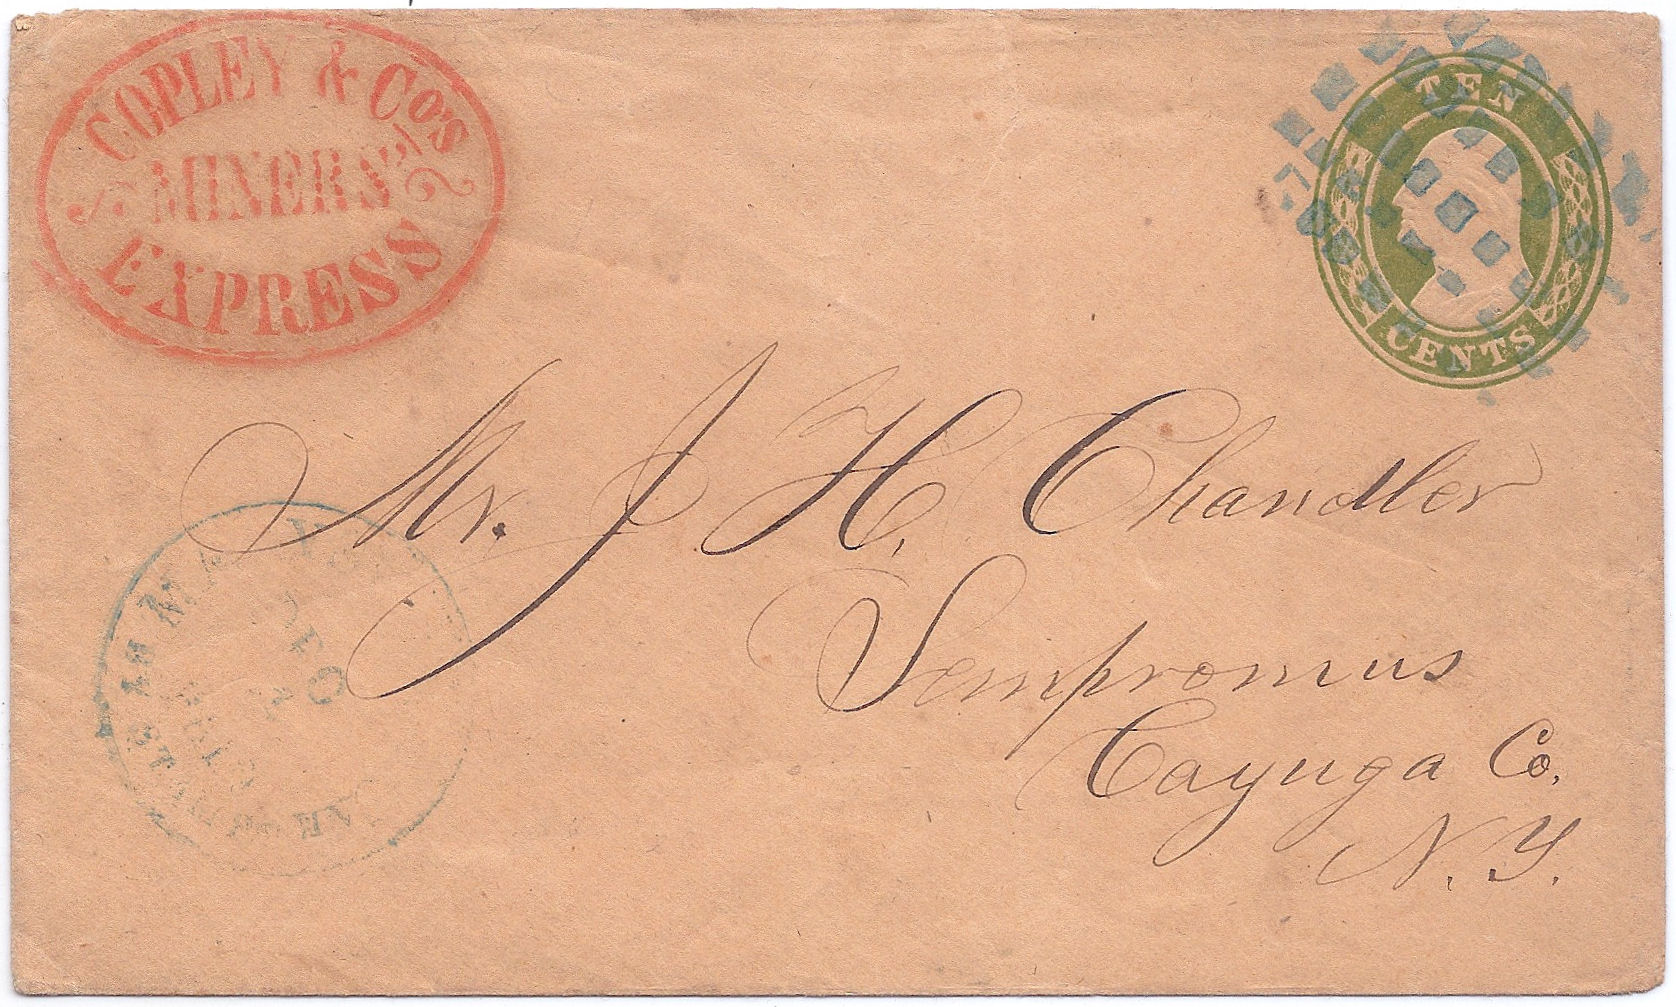 COPLEY & Co's
MINERS'
EXPRESS
TEN
CENTS
Mr. J H. Chandler
Sempronius
Cayuga Co.
N. Y.
DEC